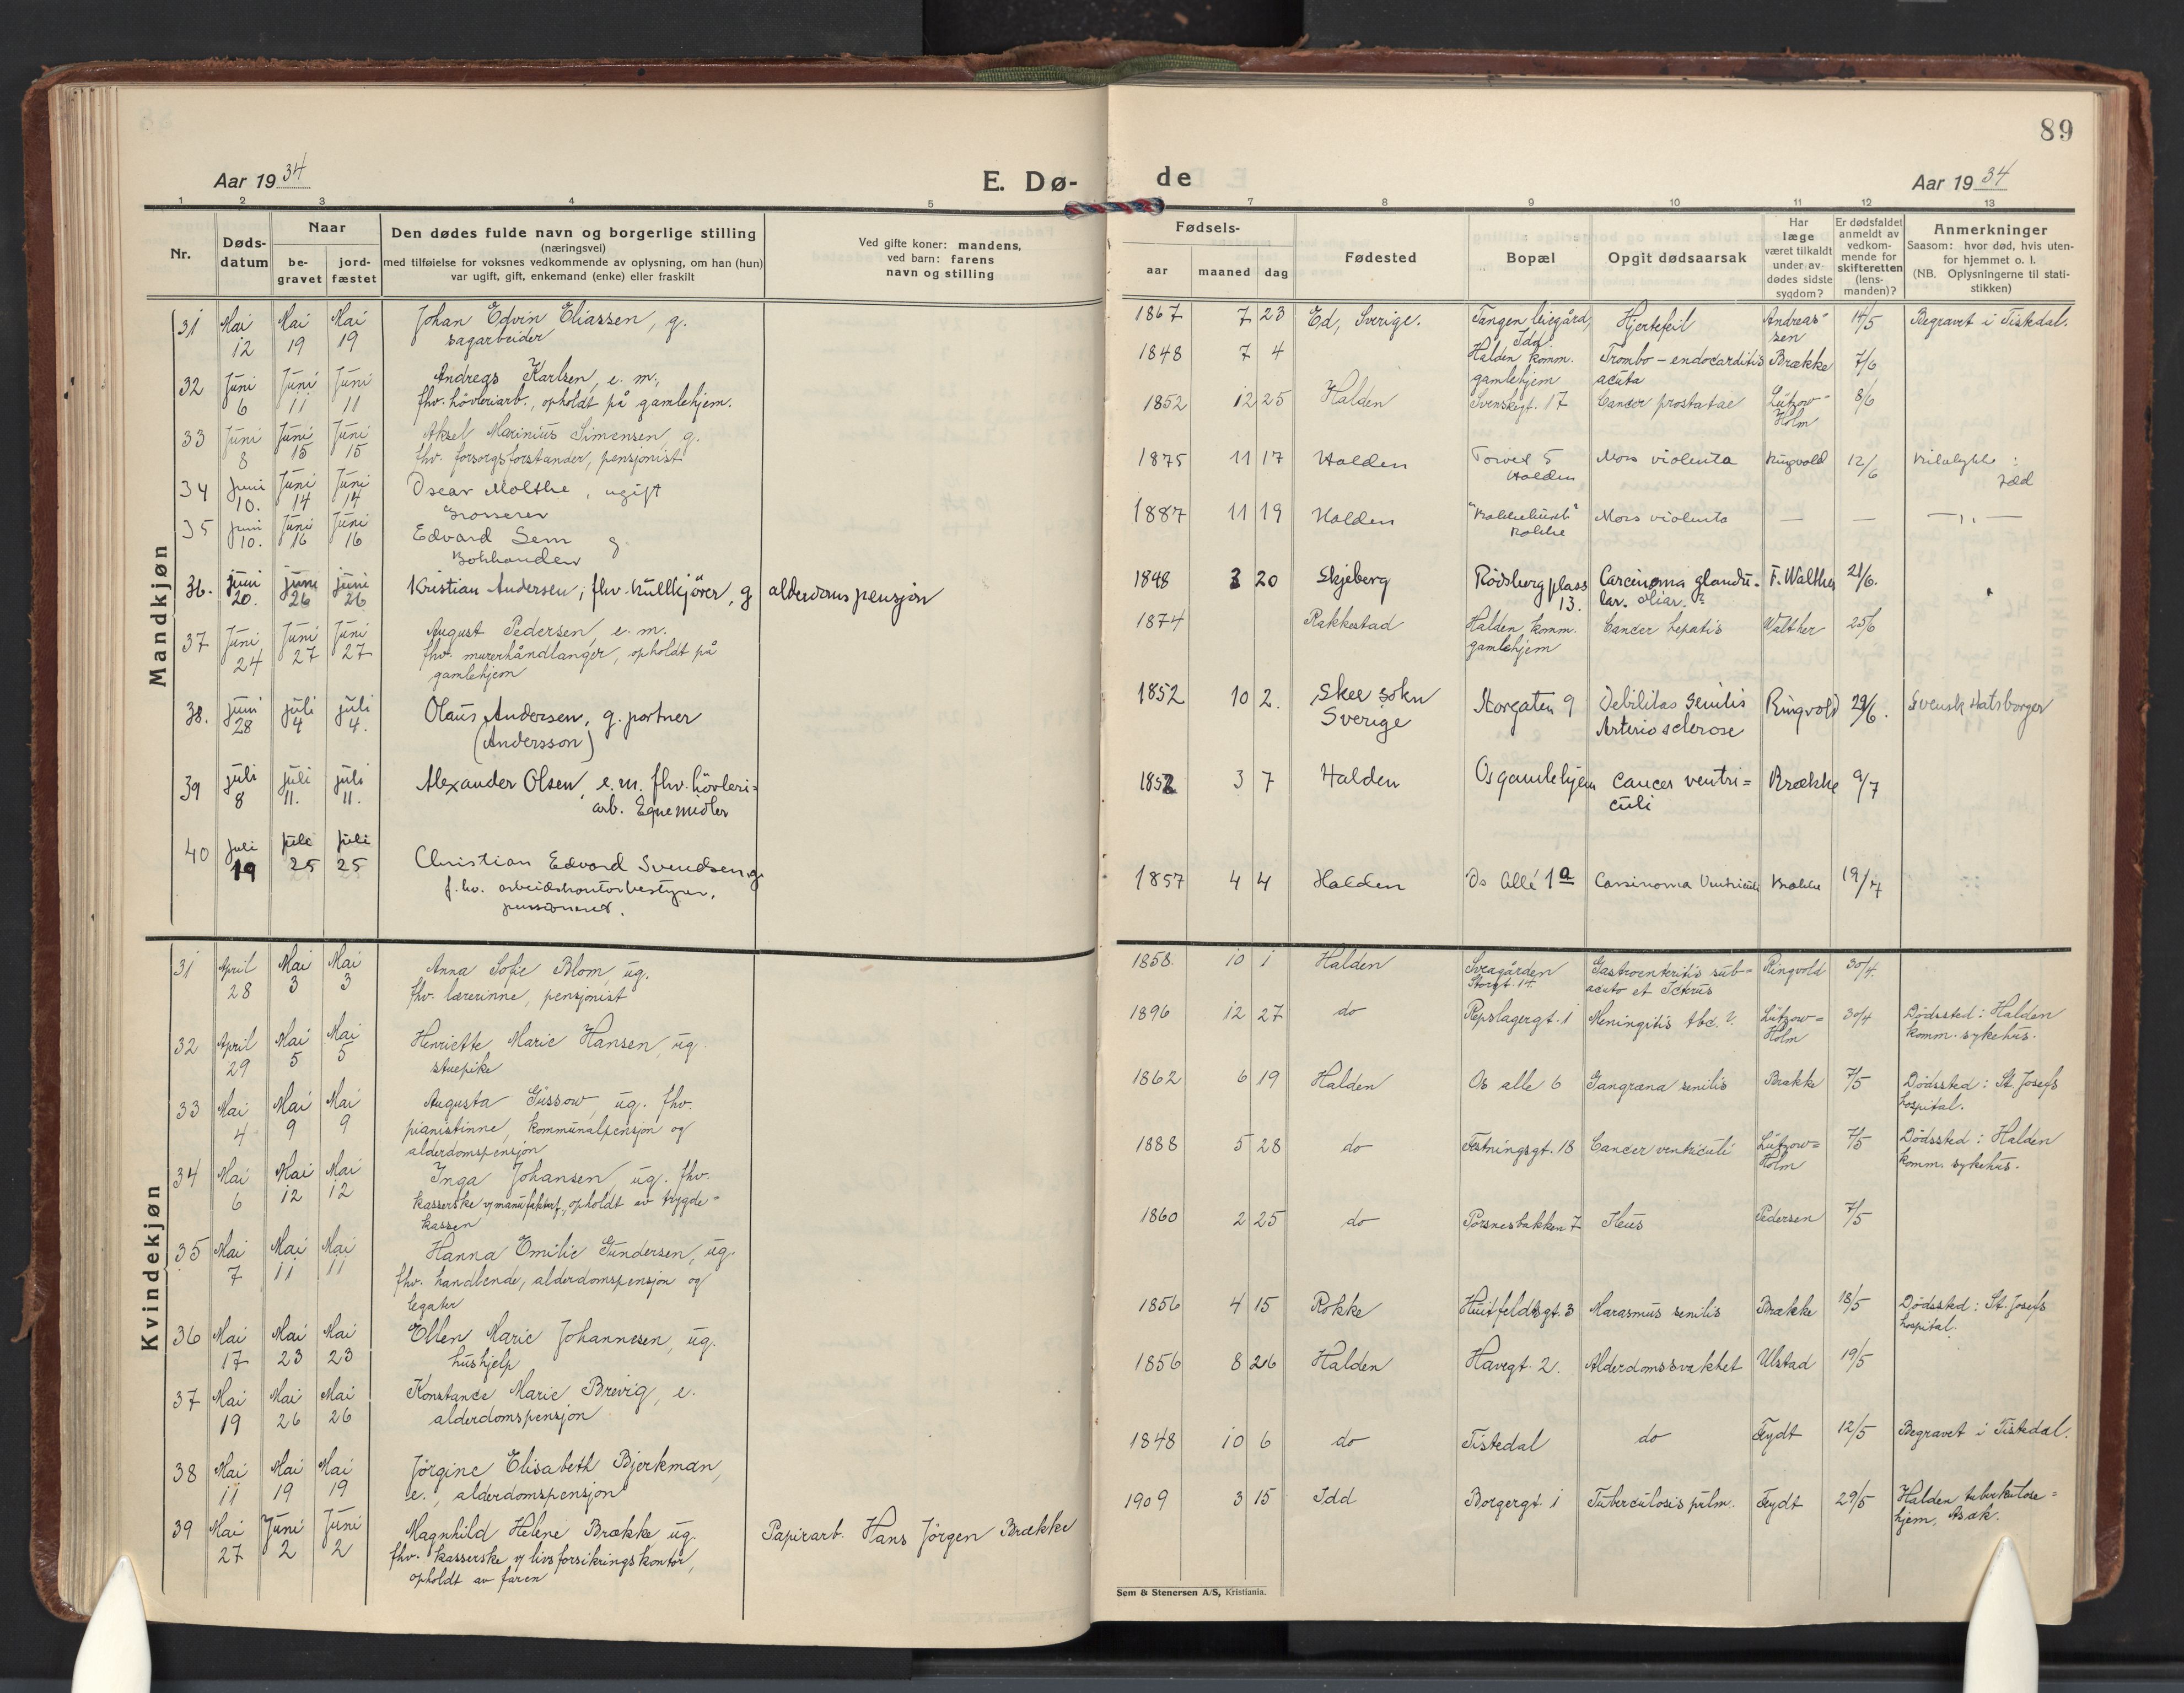 89
Aar 1934
E. Dø-
de
Aar 1934
1 2 3 4 5 7 8 9 10 11 12 13
Nr.
Døds-
datum
Naar
be-
gravet
jord-
fæstet
Den dødes fulde navn og borgerlige stilling
(næringsvei)
med tilføielse for voksnes vedkommende av oplysning, om han (hun)
var ugift, gift, enkemand (enke) eller fraskilt
Ved gifte koner: mandens,
ved barn: farens
navn og stilling
Fødsels-
aar maaned dag
Fødested
Bopæl
Opgit dødsaarsak
Har
læge
været tilkaldt
under av-
dødes sidste
sygdom?
Er dødsfaldet
anmeldt av
vedkom-
mende for
skifteretten
(lens-
manden)?
Anmerkninger
Saasom: hvor død, hvis uten-
for hjemmet o. l.
(NB. Oplysningerne til stati-
stikken)
Mandkjøn
31 Mai 12 Mai 19 Mai 19 Johan Edvin Eliassen, g.
sagarbeider
1867 7 23 Ed, Sverige. Tangen leiegård, Idd. Hjertefeil Andreas-
sen 14/5 Begravet i Tistedal.
32 Juni 6 Juni 11 Juni 11 Andreas Karlsen, e. m.,
fhv. høvleriarb., opholdt på gamlehjem.
1848 7 4 Halden komm.
gamlehjem Trombo-endocarditis
acuta Brække 7/6
33 Juni 8 Juni 15 Juni 15 Aksel Marinius Simensen, g.
fhv. forsorgsforstander, pensjonist
1852 12 25 Halden Svenskegt. 17 Cancer prostatae Lützow-
Holm 8/6
34 Juni 10. Juni 14 Juni 14 Oscar Molthe, ugift
Grosserer
1875 11 17 Halden Torvet 5
Halden Mors violenta Ringvold 12/6
Idd
35 Juni 10. Juni 16 Juni 16 Edvard Sem g.
Bokhandler
1887 11 19 Halden
Mors violenta — — —„—
36. juni 20. juni 26 juni 26 Kristian Andersen, fhv. kullkjører, g alderdomspensjon
1848 3 20 Skjeberg Rødsberg plass
13. Carcinoma glandu-
lar. F. Walther 21/6.
37 Juni 24 Juni 27 Juni 27 August Pedersen, e. m.
fhv. murerhåndlanger, opholdt på
gamlehjem
1874 Rakkestad Halden komm.
gamlehjem Cancer hepatis Walther 25/6
38. juni 28 juli 4 juli 4. Olaus Andersen, g. portner
(Andersson)
1852 10 2. Skee sokn
Sverige Storgaten 9 Debilitas senilis
Arteriosclerose Ringvold 29/6. Svensk statsborger
39 juli 8 juli 11. juli 11. Alexander Olsen, e. m. fhv. høvleri-
arb. Egne midler
1852 3 7 Halden Os gamlehjem Cancer ventri-
culi Brække 9/7
40 juli 19 juli 25 juli 25 Christian Edvard Svendsen g.
f. hv. arbeidskontorbestyrer,
pensioneret.
1857 4 4 Halden Os Allé 1a Carsinoma Ventriculi Brække 19/7
Kvindekjøn
31 April 28 Mai 3 Mai 3 Anna Sofie Blom, ug.
fhv. lærerinne, pensjonist
1858. 10 1 Halden Sveagården
Storgt. 14. Gastroenteritis sub-
acuta et Icterus Ringvold 30/4.
32 April 29 Mai 5 Mai 5 Henriette Marie Hansen, ug.
stuepike
1896 12 27 do Repslagergt. 1 Meningitis tbc. ?. Lützow-
Holm 30/4 Dødssted: Halden
komm. sykehus.
33 Mai 4 Mai 9 Mai 9 Augusta Güssow, ug. fhv.
pianistinne, kommunalpensjon og
alderdomspensjon
1862 6 19 Halden Os alle 6 Gangræna senilis Brække 7/5 Dødssted: St. Josefs
hospital.
34 Mai 6 Mai 12 Mai 12 Inga Johansen, ug. fhv.
kasserske v/manufakturf., opholdt av trygde-
kassen
1888 5 28 do Festningsgt. 18 Cancer ventriculi Lützow-
Holm 7/5 Dødssted: Halden
komm. sykehus.
35 Mai 7 Mai 11 Mai 11 Hanna Emilie Gundersen, ug.
fhv. handlende, alderdomspensjon og
legater
1860 2 25 do Porsnesbakken 7 Ileus Pedersen 7/5
36 Mai 17 Mai 23 Mai 23 Ellen Marie Johannesen, ug.
hushjelp
1856 4 15 Rokke Huitfeldtsgt. 3 Marasmus senilis Brække 18/5 Dødssted: St. Josefs
hospital.
37 Mai 19 Mai 26 Mai 26 Konstance Marie Brevig, e.
alderdomspensjon
1856 8 26 Halden Havegt. 2. Alderdomssvakhet Ulstad 19/5
38 Mai 11 Mai 19 Mai 19 Jørgine Elisabeth Bjerkman,
e., alderdomspensjon
1848 10 6 do Tistedal do Feydt 12/5 Begravet i Tistedal.
39 Mai 27 Juni 2 Juni 2 Magnhild Helene Brække ug.
fhv. kasserske v/ livsforsikringskontor,
opholdt av faren
Papirarb. Hans Jørgen Brække
1909 3 15 Idd Borgergt. 1 Tuberculosis pulm. Feydt 29/5 Halden tuberkulose-
hjem, Asak.
Sem & Stenersen A/S, Kristiania.